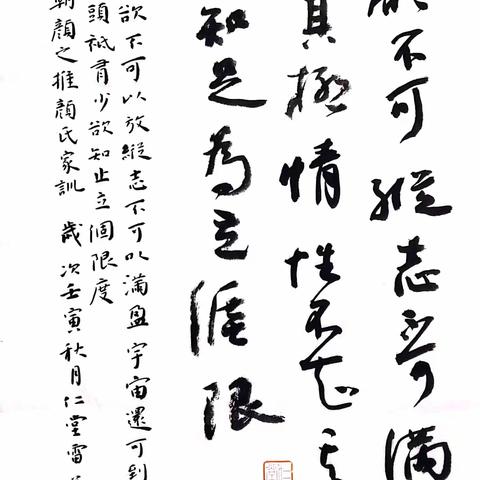 欲不可縱志不可滿
其極情性不知其
知足為立涯限
欲不可以放縱志不可以滿盈宇宙還可到
頭祗有少欲知止立個限度
朝顏之推顏氏家訓 歲次壬寅秋月仁堂雷